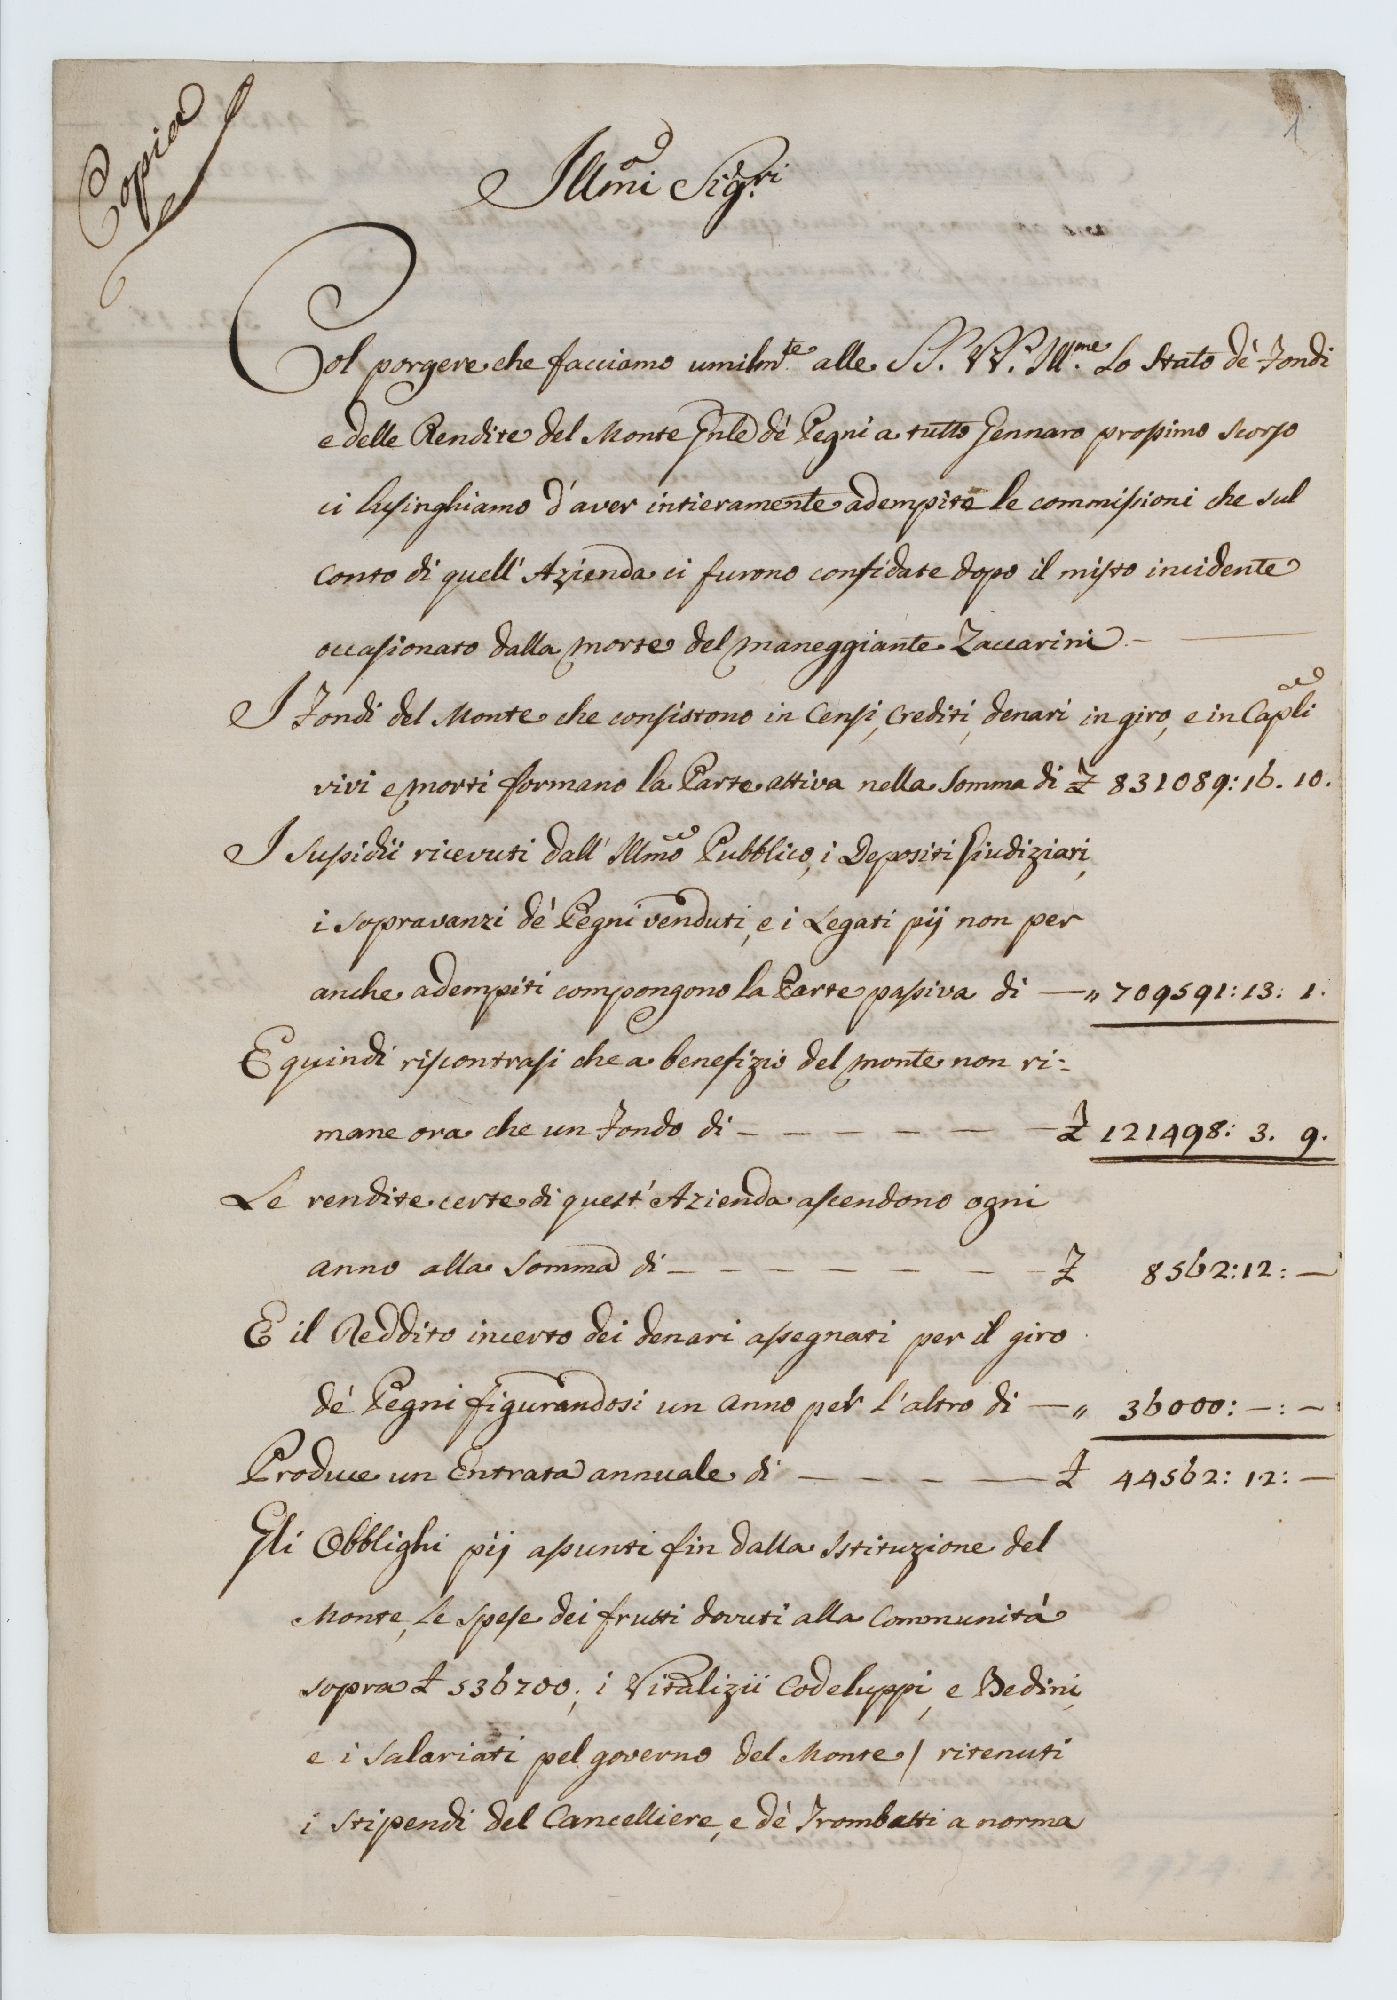 Copia
1
Illmi Sigri
Col porgere che facciamo umilmte alle SS. VV. Illme Lo Stato dé Fondi
e delle Rendite del Monte Gnle dé Pegni a tutto Gennaro prossimo scorso
ci lusinghiamo d'aver intieramente adempite le commissioni che sul
conto di quell'Azienda ci furono confidate dopo il misto incidente
occasionato dalla morte del maneggiante Zaccarini -
I Fondi del Monte che consistono in Censi, Crediti, denari in giro, e in Capli
vivi e morti formano la Parte attiva nella Somma di £ 831089: 16. 10.
I Sussidii ricevuti dall'Illmo Pubblico, i Depositi Giudiziari,
i sopravanzi dé Pegni venduti, e i Legati pij non per
anche adempiti compongono la Parte passiva di — „ 709591: 13: 1.
E quindi riscontrasi che a benefizio del monte non ri=
mane ora che un Fondo di — — — — — — £ 121498: 3. 9.
Le rendite certe di quest'Azienda ascendono ogni
anno alla Somma di — — — — — — — £ 8562: 12: —
E il Reddito incerto dei denari assegnati per il giro
dé Pegni figurandosi un anno per l'altro di — „ 36000: —: —
Produce un Entrata annuale di — — — — £ 44562: 12: —
Gli Obblighi pij assunti fin dalla Istituzione del
Monte, le spese dei frutti dovuti alla Communità
sopra £ 536700; i Vitalizii Codeluppi, e Bedini,
e i Salariati pel governo del Monte / ritenuti
i stipendi del Cancelliere, e dé Trombatti a norma